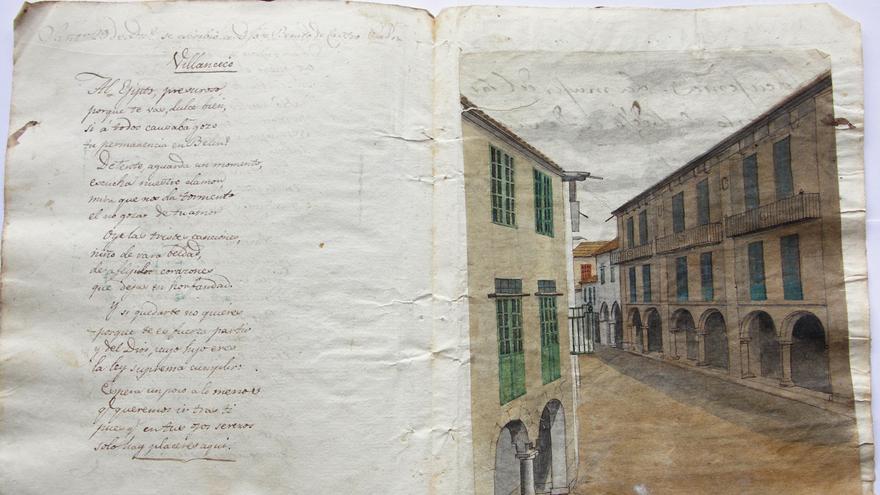 se
de Castro
Villancico
Al Egipto, presuroso
porque te vas, dulce bien,
si a todos causaba gozo
tu permanencia en Belen?
Detente, aguarda un momento,
escucha nuestro clamor,
mira que nos da tormento
el no gozar de tu amor
Oye las tristes canciones,
niño de rara beldad,
de afligidos corazones
que desean tu bondad.
Y si quedarte no quieres
porque te es fuerza partir
y del Dios, cuyo hijo eres
la ley suprema cumplir.
Espera un poco a lo menos
q.e queremos ir tras ti
pues q.e en tus ojos serenos
solo hay placeres aqui.